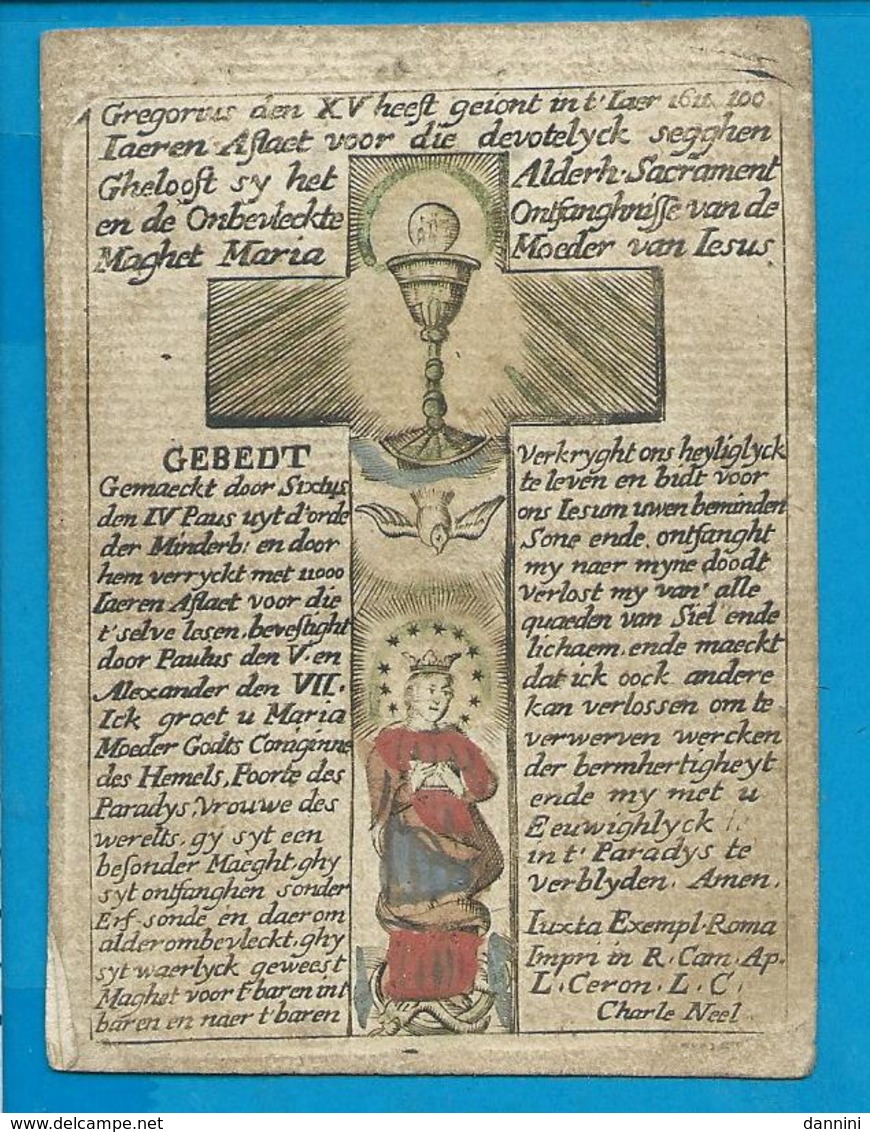 Gregorius den XV heeft geiont in t' Iaer 1611. 100
Iaeren Aflaet voor die devotelyck segghen
Gheloost sy het Alderh. Sacrament
en de Onbevleckte Ontfanghnisse van de
Maghet Maria Moeder van Iesus.
GEBEDT
Gemaeckt door Sixtus
den IV Paus uyt d'orde
der Minderb: en door
hem verryckt met 11000
Iaeren Aflaet voor die
t'selve lesen, bevestight
door Paulus den V. en
Alexander den VII.
Ick groet u Maria
Moeder Godts Coniginne
des Hemels, Poorte des
Paradys, Vrouwe des
werelts, gy syt een
besonder Maeght, ghy
syt ontfanghen sonder
Erf-sonde en daerom
alderombevleckt, ghy
syt waerlyck geweest
Maghet voor t'baren int
baren en naer t'baren
Verkryght ons heyliglyck
te leven en bidt voor
ons Iesum uwen beminden
Sone ende, ontfanght
my naer myne doodt
verlost my van' alle
quaeden van Siel ende
lichaem, ende maeckt
dat ick oock andere
kan verlossen om te
verwerven wercken
der bermhertigheyt
ende my met u
Eeuwighlyck
in t' Paradys te
verblyden. Amen.
Iuxta Exempl. Roma
Impri in R. Cam. Ap.
L. Ceron. L. C.
Charle Neel
delcampe.net
dannini